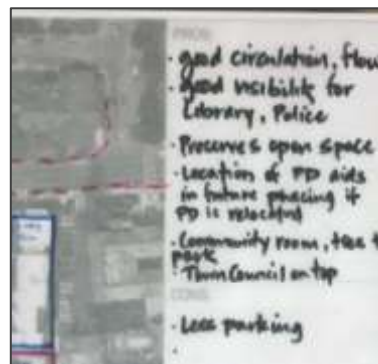 PROS
· good circulation, flow
· good visibility for
Library, Police
· Preserves open space
· Location of PD aids
in future phasing if
PD is relocated
· Community room, tree t
park
· Town Council on top
CONS
· Less parking
·